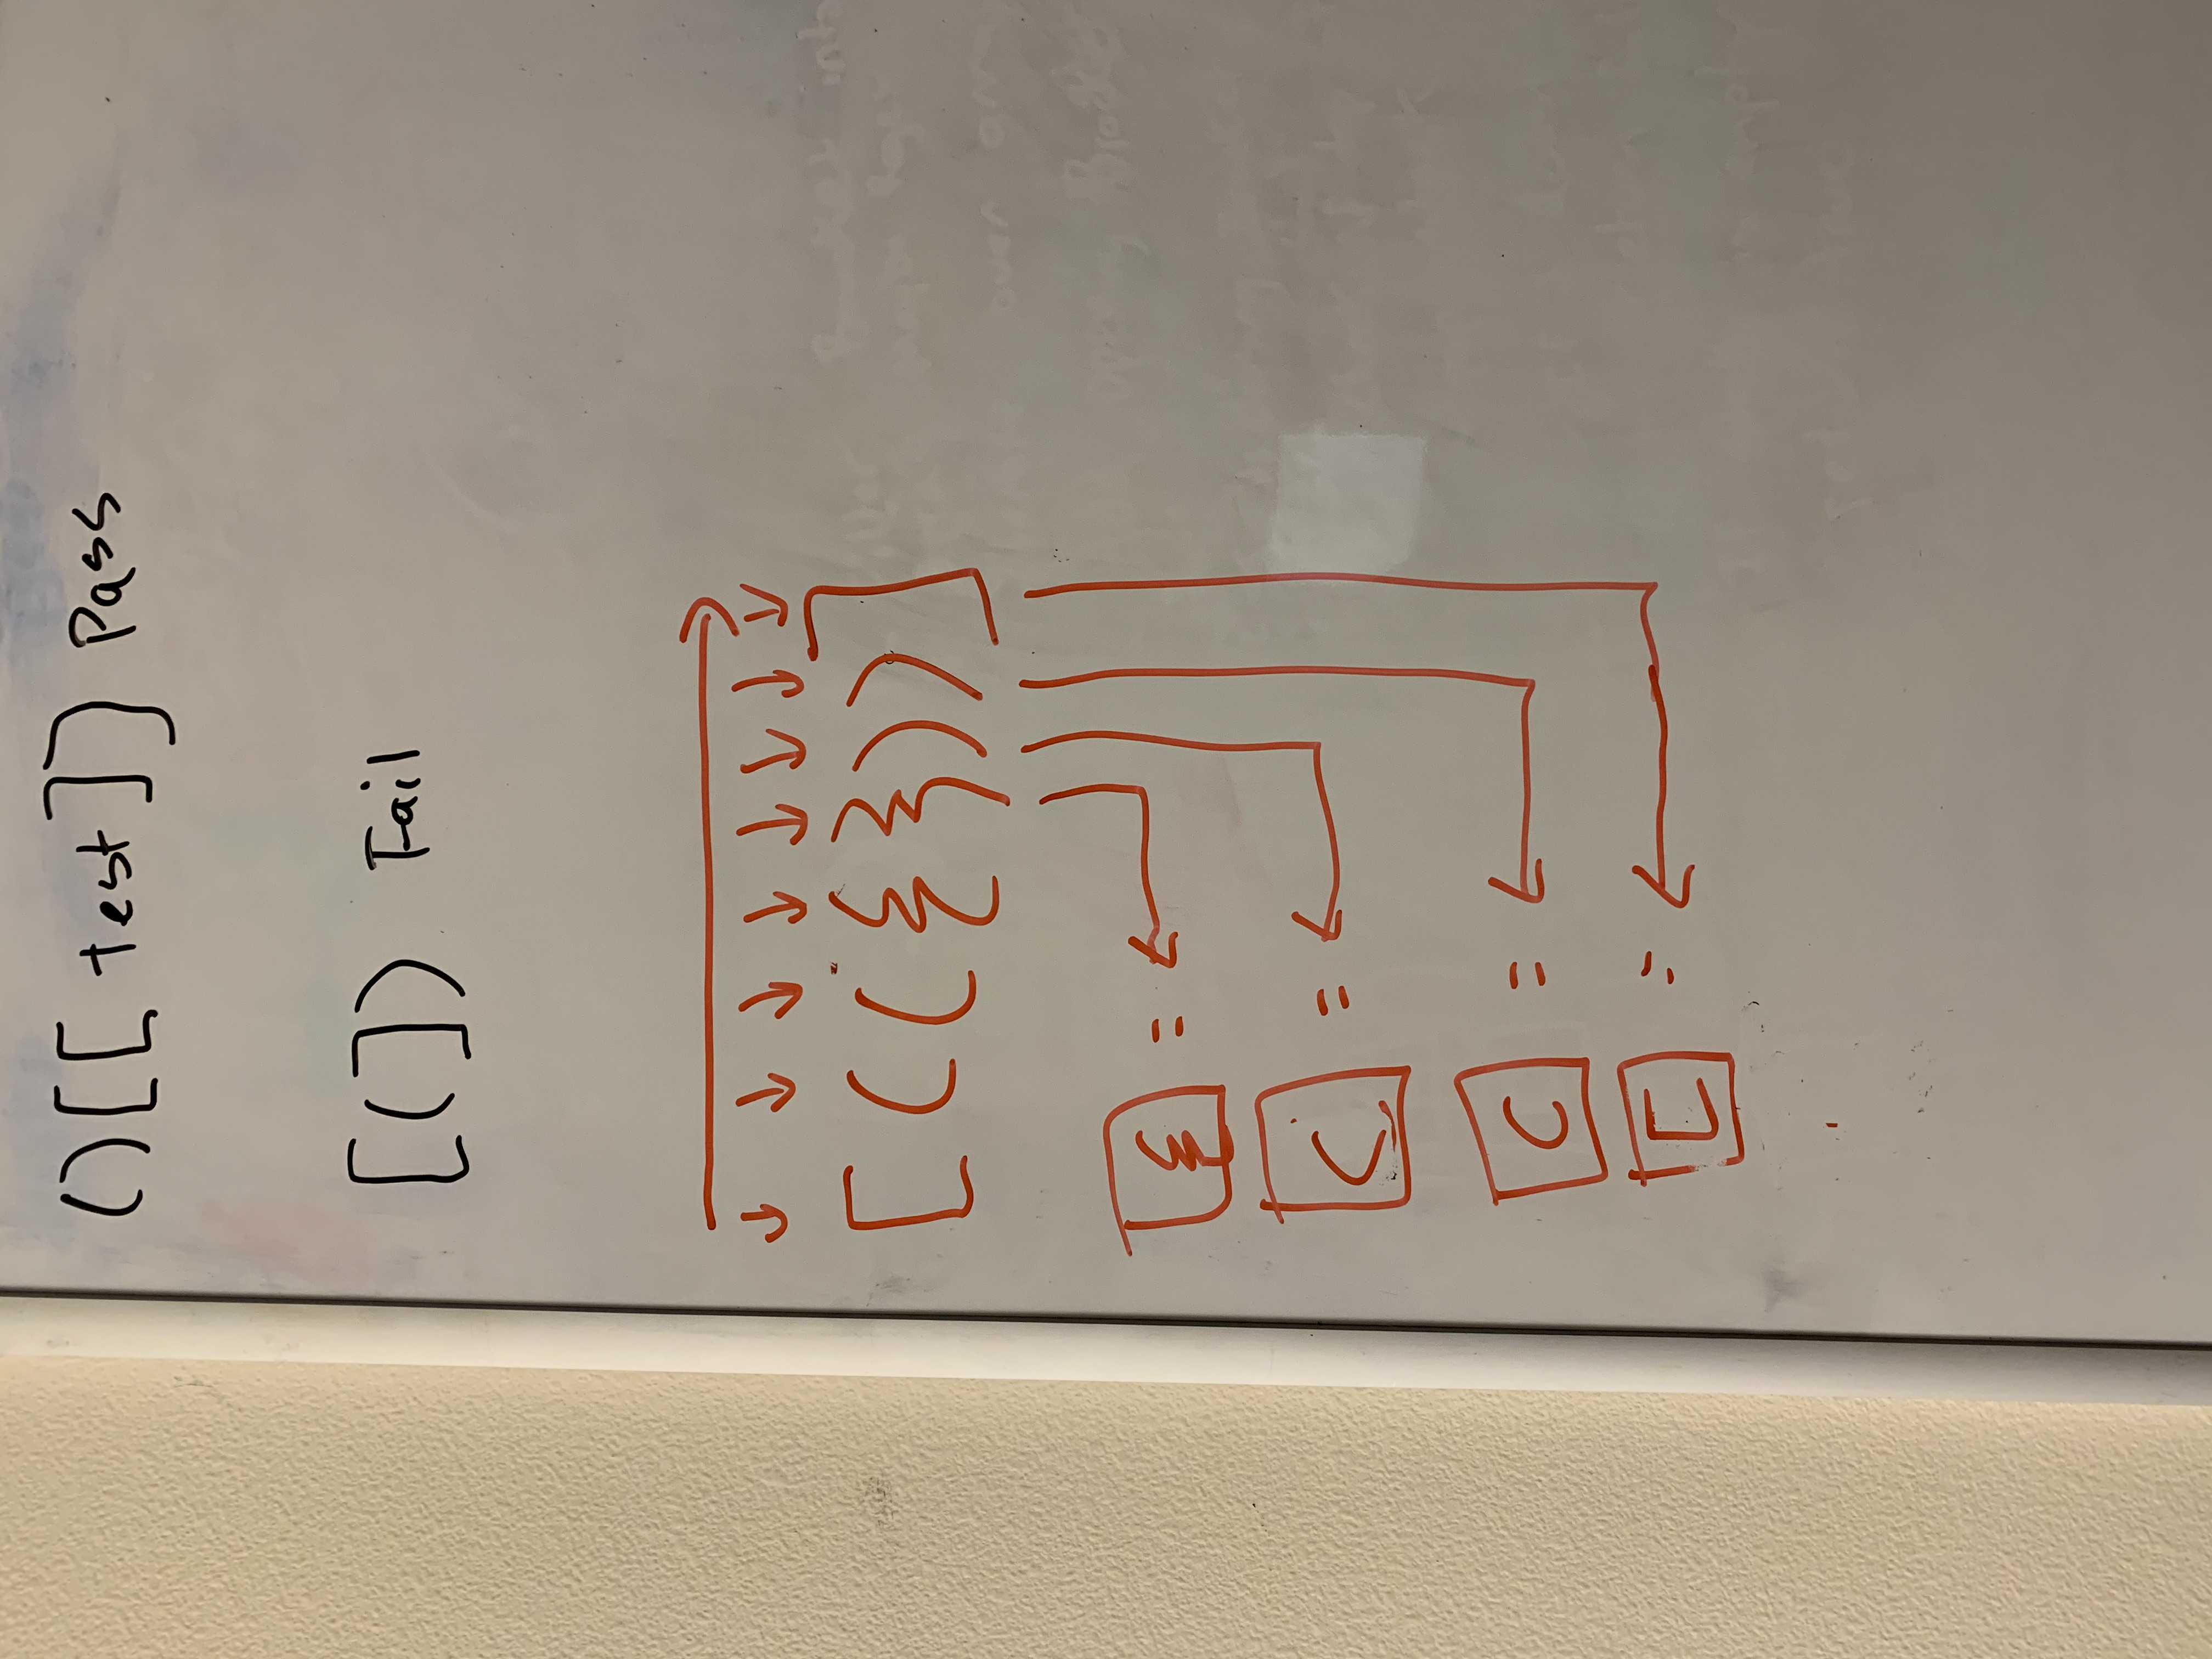 ()[[ test ]] Pass
[(]) Fail
[(({}))]
{ =
( =
( =
[ =